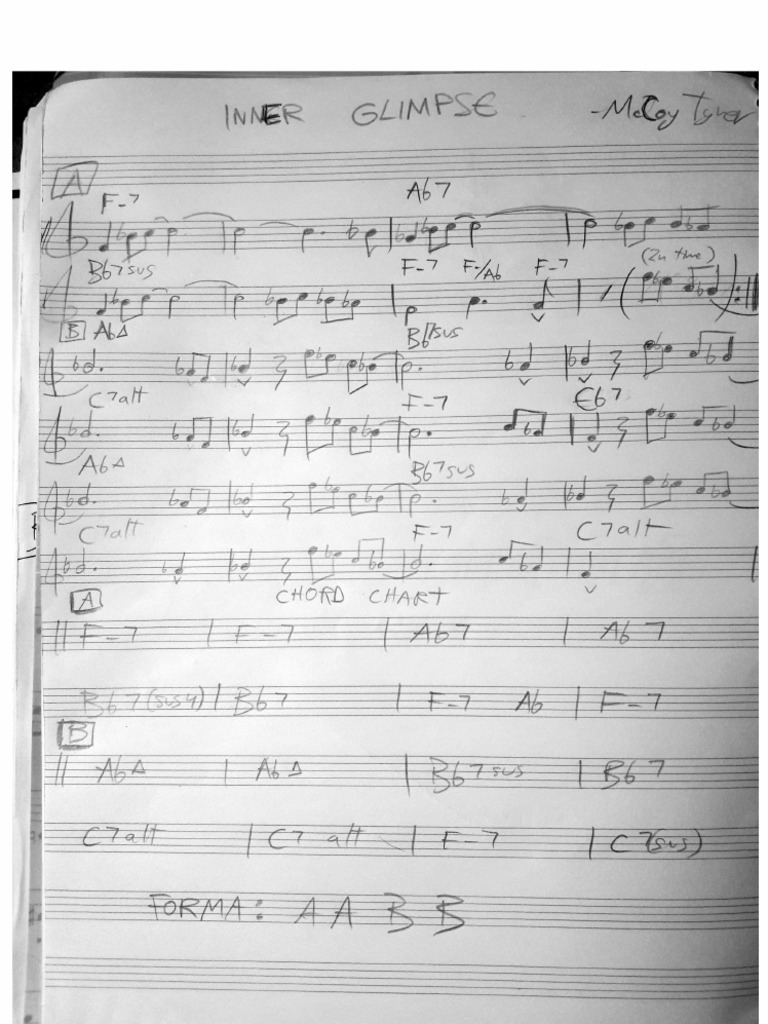 INNER GLIMPSE -McCoy Tyner
A
F-7 Ab7
Bb7sus F-7 F-/Ab F-7 (2n time)
B Ab△ Bb7sus
C7alt F-7 Eb7
Ab△ Bb7sus
C7alt F-7 C7alt
A CHORD CHART
F-7 | F-7 | Ab7 | Ab7
Bb7(sus4) | Bb7 | F-7 Ab | F-7
B
Ab△ | Ab△ | Bb7sus | Bb7
C7alt | C7 alt | F-7 | C7(sus)
FORMA: A A B B